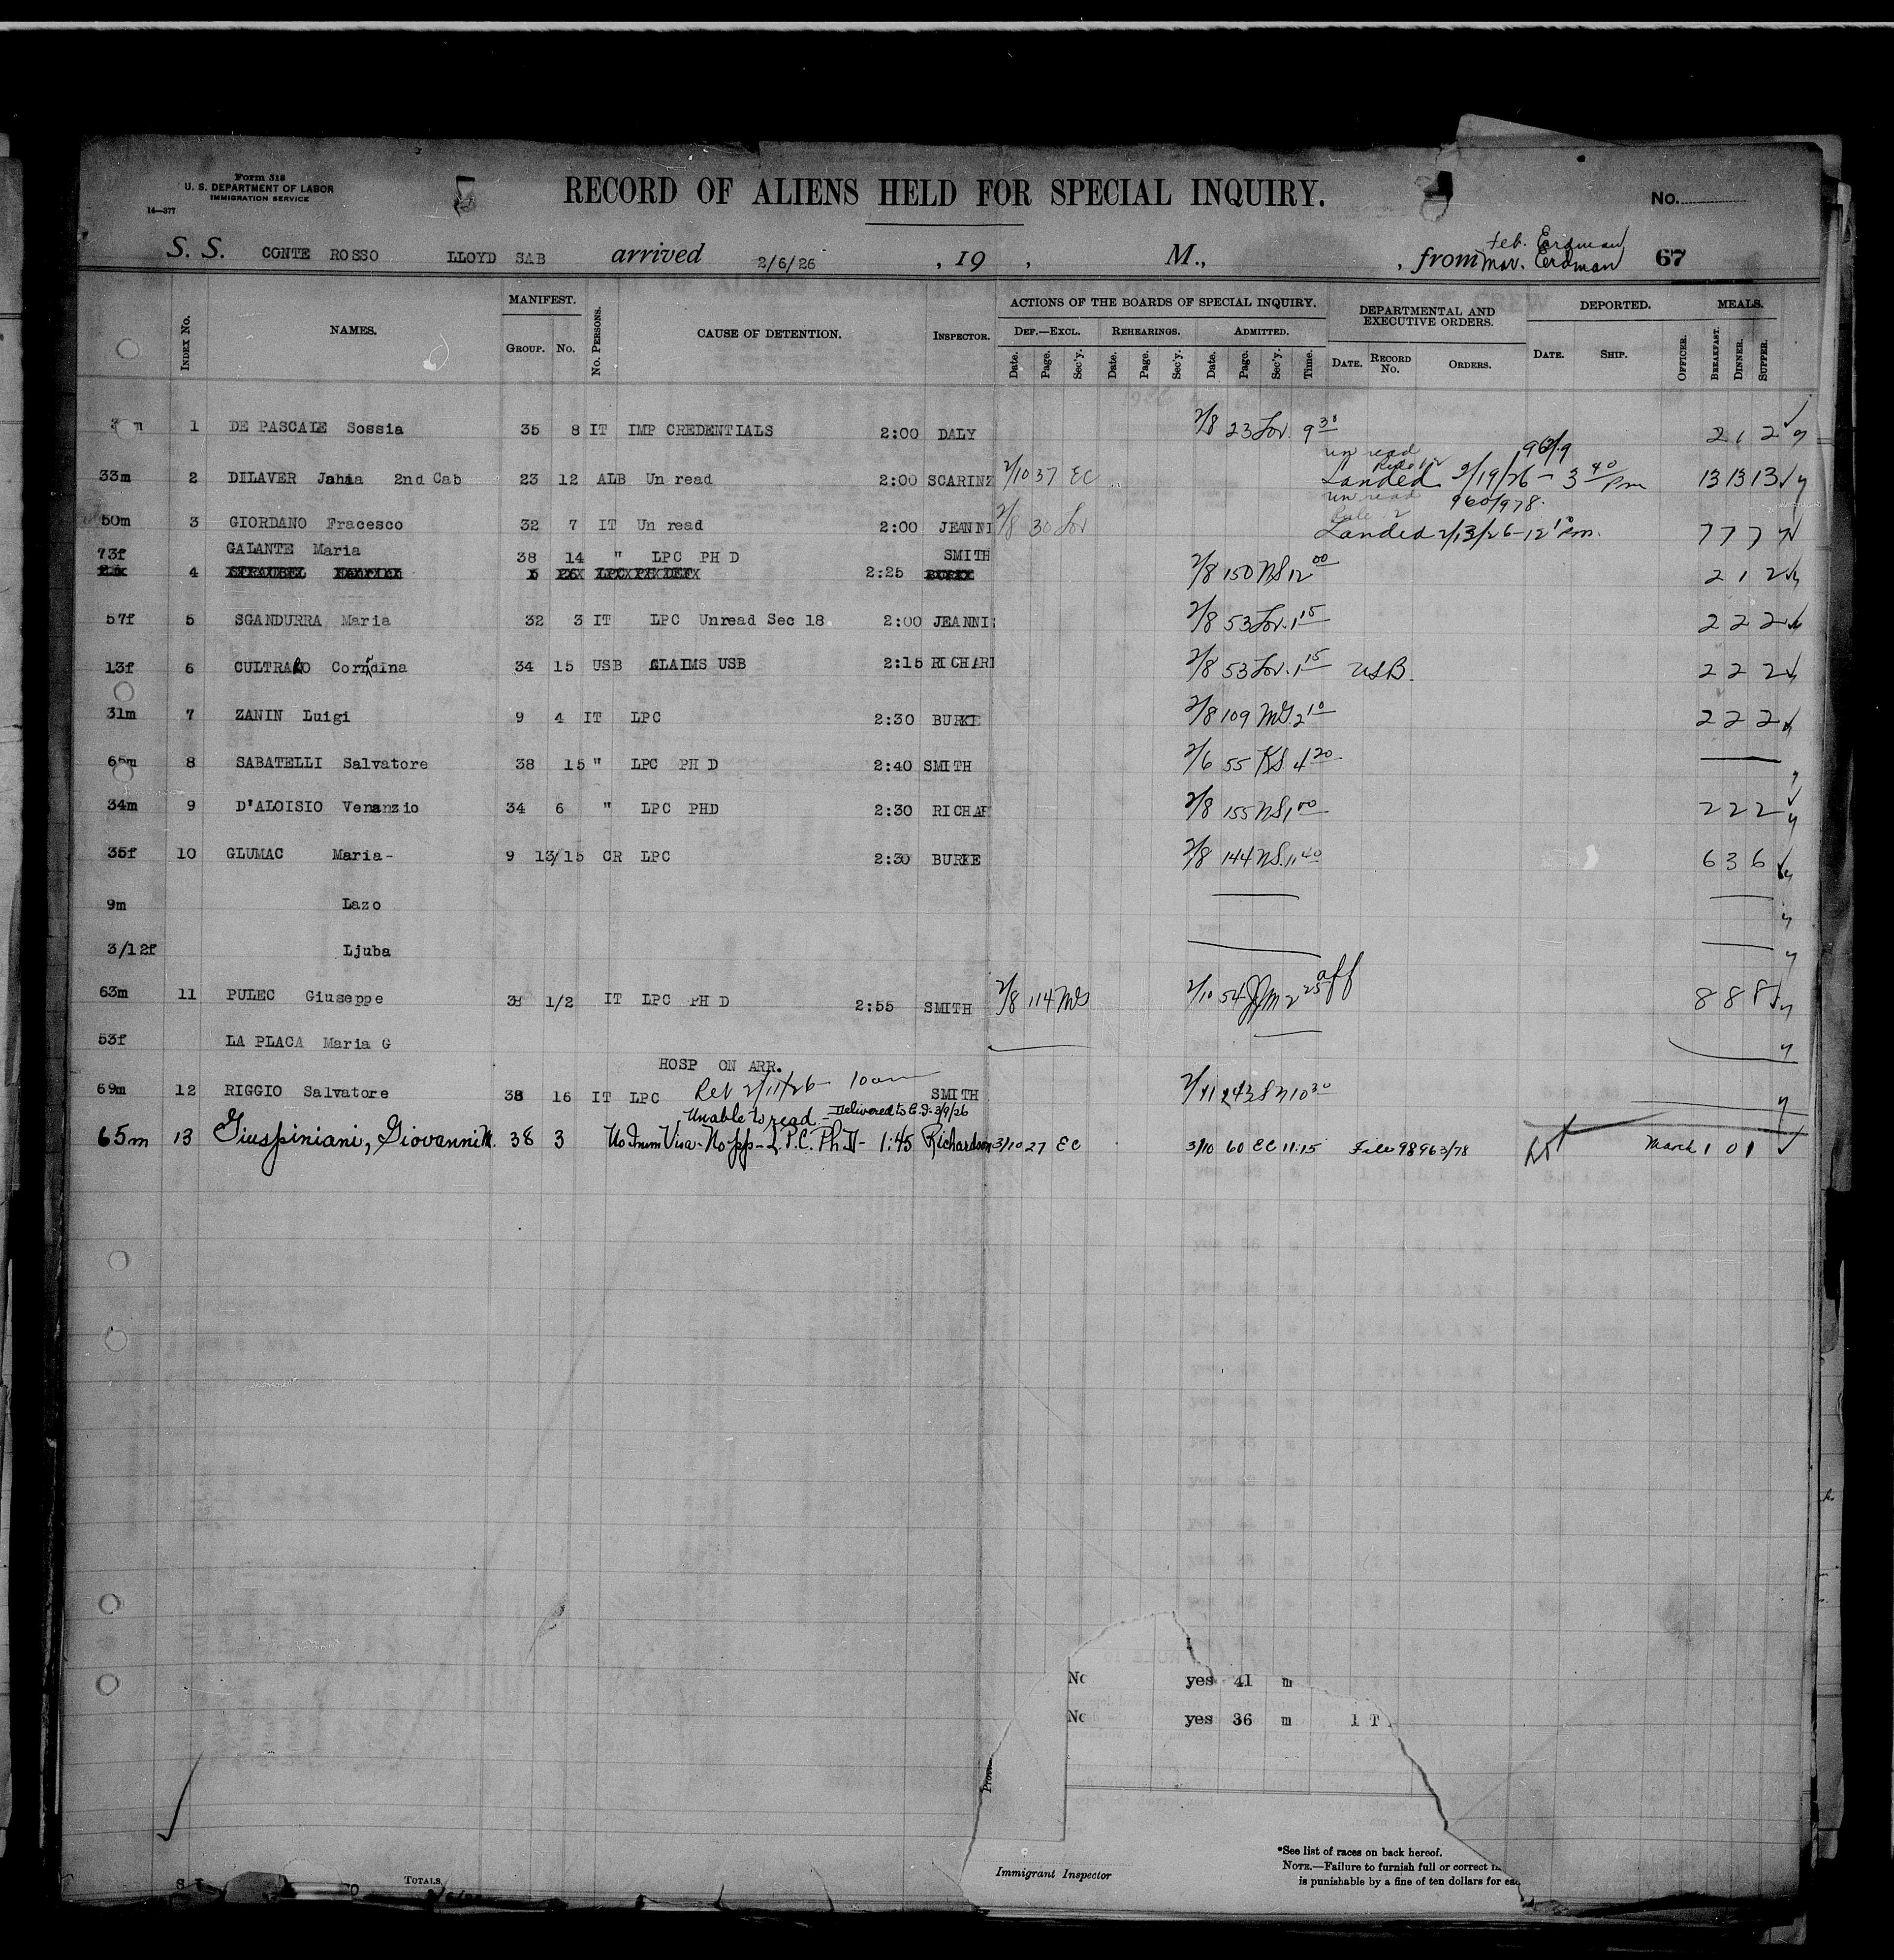 Form 518
U. S. DEPARTMENT OF LABOR
IMMIGRATION SERVICE
14—377
RECORD OF ALIENS HELD FOR SPECIAL INQUIRY.
No.
S. S. CONTE ROSSO LLOYD SAB arrived 2/6/26 , 19 , M., , from Feb. Erdman 67
Mar. Erdman
INDEX NO. NAMES. MANIFEST. GROUP. NO. NO. PERSONS. CAUSE OF DETENTION. INSPECTOR. ACTIONS OF THE BOARDS OF SPECIAL INQUIRY. DEPARTMENTAL AND EXECUTIVE ORDERS. DEPORTED. MEALS.
DEF.—EXCL. REHEARINGS. ADMITTED.
Date. Page. Sec'y. Date. Page. Sec'y. Date. Page. Sec'y. Time. DATE. RECORD No. ORDERS. DATE. SHIP. OFFICER. BREAKFAST. DINNER. SUPPER.
1 DE PASCALE Sossia 35 8 IT IMP CREDENTIALS 2:00 DALY 2/8 23 Lov. 9 30 2 1 2
un read
33m 2 DILAVER Jahia 2nd Cab 23 12 ALB Un read 2:00 SCARINZ 2/10 37 EC Landed 2/19/26 - 3 40 Pm 13 13 13
un read 960/978.
50m 3 GIORDANO Fracesco 32 7 IT Un read 2:00 JEANNI 2/8 30 Lov Rule 12 Landed 2/13/26 - 12 10 Pm. 7 7 7
73f GALANTE Maria 38 14 " LPC PH D SMITH
4 2:25 2/8 150 NS 12 00 2 1 2
57f 5 SGANDURRA Maria 32 3 IT LPC Unread Sec 18 2:00 JEANNI 2/8 53 Lov. 1 15 2 2 2
13f 6 34 15 USB CLAIMS USB 2:15 RICHARI 2/8 53 Lov. 1 15 USB. 2 2 2
31m 7 ZANIN Luigi 9 4 IT LPC 2:30 BURKE 2/8 109 MS. 2 10 2 2 2
8 SABATELLI Salvatore 38 15 " LPC PH D 2:40 SMITH 2/6 55 KS. 4 20
34m 9 D'ALOISIO Venanzio 34 6 " LPC PHD 2:30 RICHAR 2/8 155 NS 1 00 2 2 2
35f 10 GLUMAC Maria- 9 13/15 CR LPC 2:30 BURKE 2/8 144 NS. 11 40 6 3 6
9m Lazo
3/12f Ljuba
63m 11 PULEC Giuseppe 38 1/2 IT LPC PH D 2:55 SMITH 2/8 114 MS 2/10 54 2 25 aff 8 8 8
53f LA PLACA Maria G
HOSP ON ARR.
69m 12 RIGGIO Salvatore 38 16 IT LPC Rel 2/11/26 - 10 am SMITH 2/11 10 30
Unable to read - Delivered to E.I. 3/9/26
65m 13 Giuspiniani, Giovanni N. 38 3 No Imm Visa - No pp - L.P.C. Ph.D - 1:45 Richardson 3/10 27 EC 3/10 60 EC 11:15 File 98963/78 March 1 0 1
No yes 41 m
No yes 36 m 1 T
*See list of races on back hereof.
Immigrant Inspector
NOTE.—Failure to furnish full or correct
is punishable by a fine of ten dollars for
TOTALS,